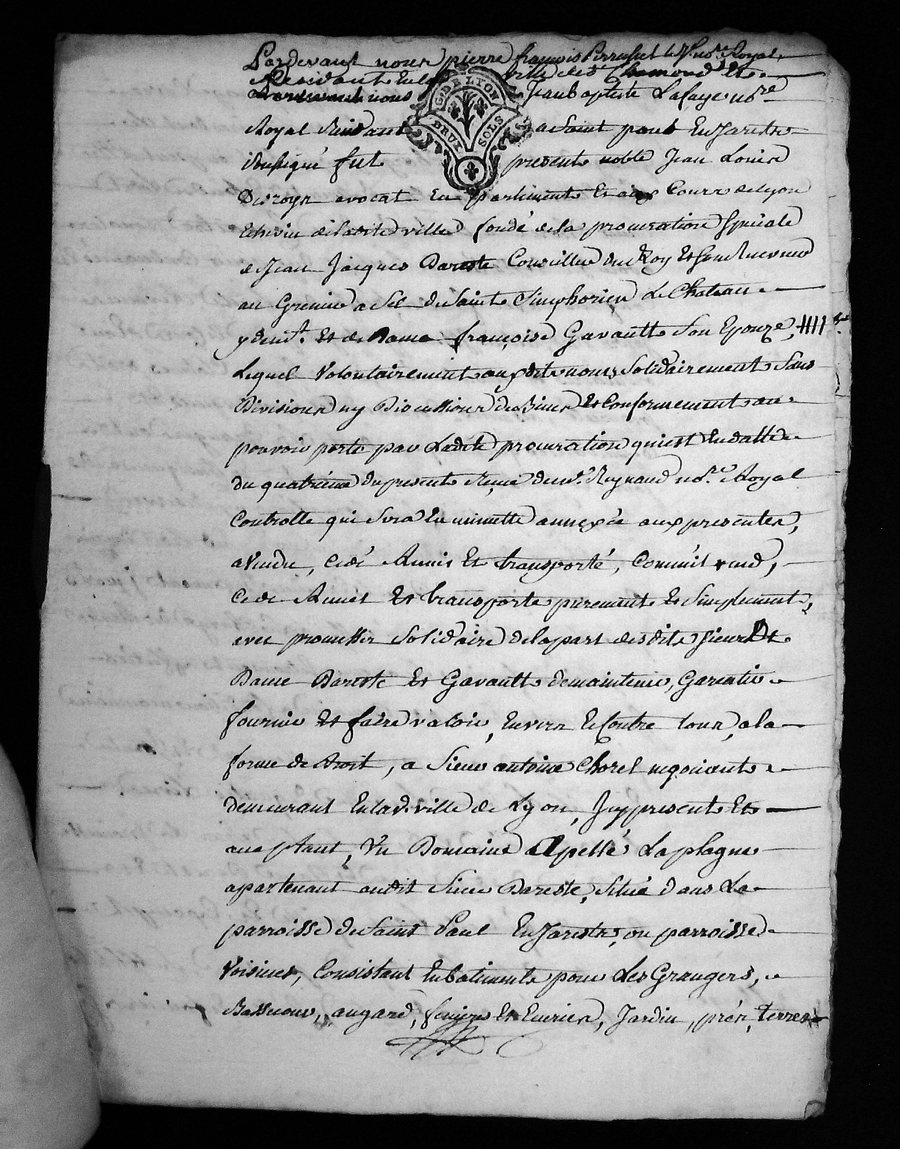 Pardevant nous pierre françois Perrussel le . no.re Royal
Residant en la ville de St Chamond Et
nous Jean Baptiste Lafaye no.re
Royal Residant a Saint paul En Jarestz
soussigné fut présent noble Jean Louis
Desroys avocat En parlement Et aux Cours de Lyon
Echevin de la ville fondé de la procuration spéciale
de Jean Jacques Dareste Conseiller du Roy
au Grenier a Sel de Saint Simphorien Le Chateau
y demt. Et de Dame françoise Gavault Son Epouze,
Lequel volontairement auxdits noms, Solidairement Sans
Division ny Discussion de biens Et conformement au
pouvoir porté par Ladite procuration qui est En datte
du quatrième du present Reçue de Me. Reynaud no.re Royal
Controllé qui sera En minutte annexée aux presentes,
a vendu, cedé Remis Et transporté, Comm'il vend,
Cede Remet Et transporte purement Et Simplement,
avec promesse solidaire de la part desdits sieur Et
Dame Dareste Et Gavault de maintenir, Garentir
fournir Et faire valoir, Envers Et Contre tous, a la
forme de droit, a Sieur antoine Chorel negociant
demeurant En lad. ville de Lyon, Icy present Et
acceptant, Un Domaine Apellé La plagne
apartenant audit Sieur Dareste, Situé dans La
parroisse de Saint Paul En Jarestz, ou parroisses
Voisines, Consistant En batiments pour Les Grangers,
angard, fenière Et Ecuries, Jardin, prés, terres
G. DE LYON
DEUX SOLS